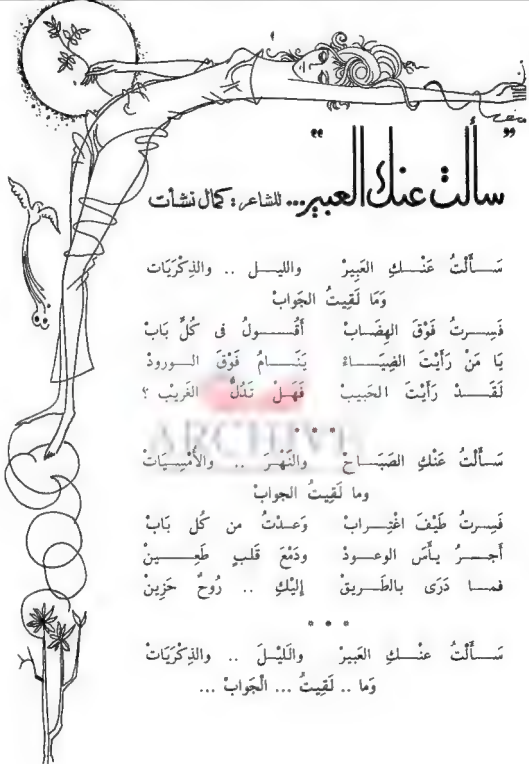 "سألت عنك العبير" ... للشاعر : كمال نشأت
سَأَلْتُ عَنْكِ العَبِيرْ والليل .. والذِكْرَيَات
وَمَا لَقِيتُ الجَوابْ
فَسِرتُ فَوْقَ الهِضَابْ أَقُولُ فى كُلِّ بَابْ
يَا مَنْ رَأَيْتَ الضِيَاءْ يَنَامُ فَوْقَ الورودْ
لَقَدْ رَأَيْتَ الحَبِيبْ فَهَلْ تَدُلُّ الغَرِيْب ؟
* * *
ARCHIVE
سَأَلْتُ عَنْكِ الصَبَاحْ والنَهْرَ .. والأُمْسِيَاتْ
وما لَقِيتُ الجوابْ
فَسِرتُ طَيْفَ اغْتِرابْ وَعدْتُ من كُل بَابْ
أَجرُ يأْسَ الوعودْ ودَمْعَ قَلبٍ طَعِينْ
فما دَرَى بالطَرِيقْ إِلَيْكِ .. رُوحٌ حَزِينْ
* * *
سَأَلْتُ عنْكِ العَبيرْ والَليْلَ .. والذِكْرَيَاتْ
وَما .. لَقِيتُ ... الْجَوابْ ...